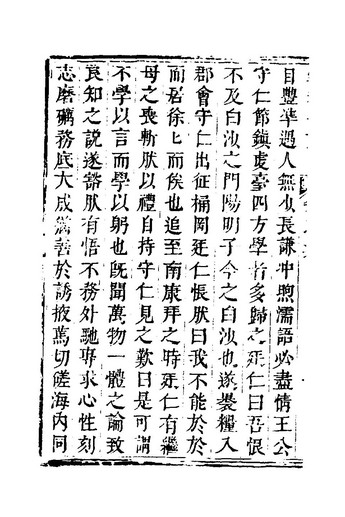 目豐準遇人無少長謙冲煦濡語必盡情王公
守仁節鎮虔臺四方學者多歸之廷仁曰吾恨
不及白沙之門陽明子今之白沙也遂褁糧入
郡會守仁出征桶岡廷仁悵然曰我不能於於
而居徐徐而俟也追至南康拜之時廷仁有繼
母之喪斬然以禮自持守仁見之歎曰是可謂
不學以言而學以躬也旣聞萬物一體之論致
良知之說遂豁然有悟不務外馳專求心性刻
志磨礪務底大成篤善於誘掖萬切磋海内同